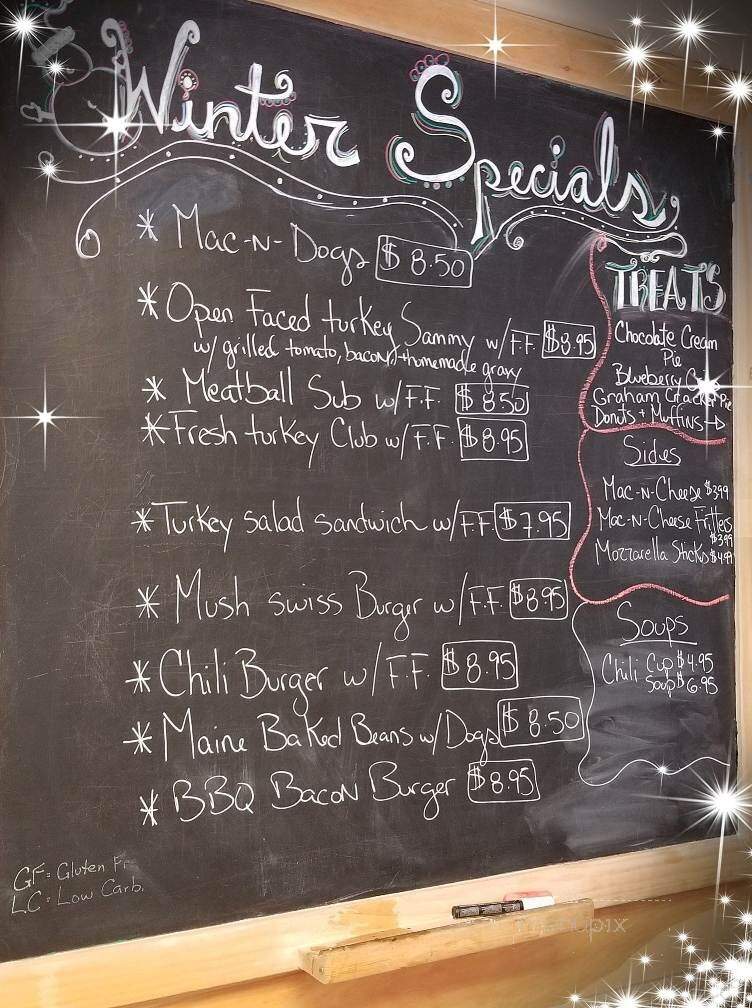 Winter Specials
* Mac-N-Dogs $8.50
* Open Faced turkey Sammy w/F.F. $8.95
w/ grilled tomato, bacon, + homemade gravy
* Meatball Sub w/F.F. $8.50
* Fresh turkey Club w/F.F. $8.95
* Turkey salad sandwich w/F.F. $7.95
* Mush swiss Burger w/F.F. $8.95
* Chili Burger w/F.F. $8.95
* Maine Baked Beans w/Dogs $8.50
* BBQ Bacon Burger $8.95
TREATS
Chocolate Cream
Pie
Blueberry
Graham Cracker Pie
Donuts + Muffins →
Sides
Mac-N-Cheese $3.99
Mac-N-Cheese Fritters
$3.99
Mozzarella Sticks $4.99
Soups
Chili Cup $4.95
Soup $6.95
GF = Gluten
LC = Low Carb.